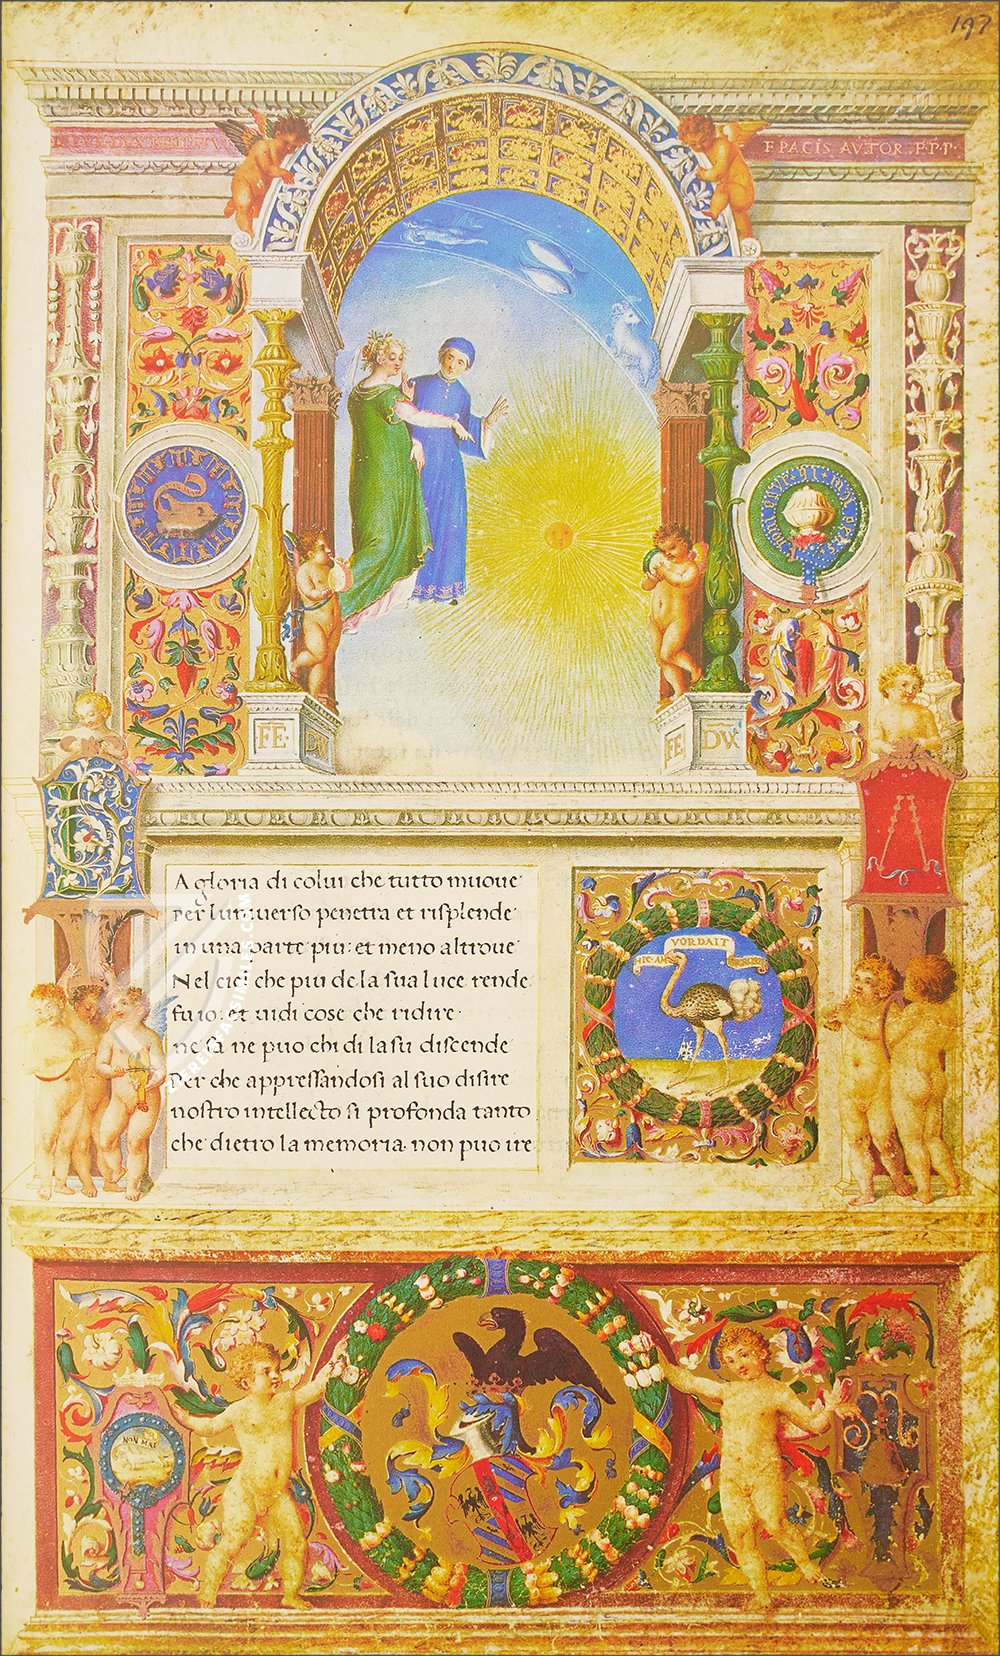 197
E PACIS AVTOR P.P.P.
FE DVX
FE DVX
L
A gloria di colui che tutto muove
Per l universo penetra et risplende
in una parte piu: et meno altrove
Nel ciel che piu de la sua luce rende
fu io: et vidi cose che ridire
ne sa ne puo chi di lasu discende
Per che appressandosi al suo disire
nostro intellecto si profonda tanto
che dietro la memoria non puo ire
HIC AN VORDAIT
NON MAI